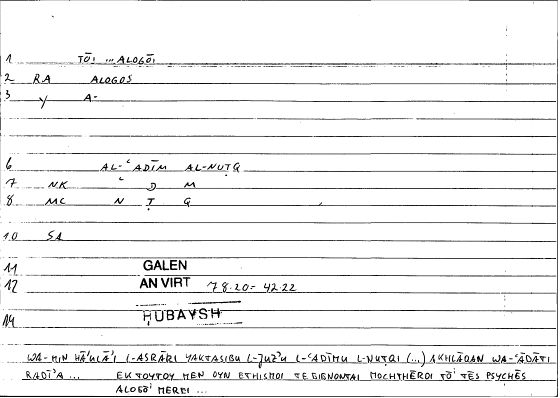 1 TŌI ... ALOGŌI
2 RA ALOGOS
3 Y A-
6 AL-ʿADĪM AL-NUṬQ
7 NK ʿ D M
8 MC N Ṭ Q
10 SA
11 GALEN
12 AN VIRT 78.20 = 42.22
14 ḤUBAYSH
WA-MIN HĀʾULĀʾI L-ASRĀRI YAKTASIBU L-ǦUZʾU L-ʿADĪMU L-NUṬQI (...) AKHLĀQAN WA-ʿĀDĀTI
RADĪʾA ... EK TOYTOY MEN OYN ETHISMOI TE GIGNONTAI MOCHTHĒROI TŌI TĒS PSYCHĒS
ALOGŌI MEREI ...